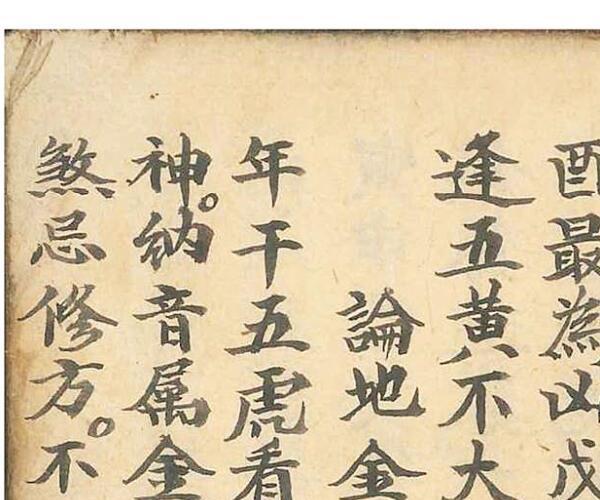 酉最為凶戊
逢五黄不大
論地金
年干五虎看
神。納音属金
煞忌修方。不